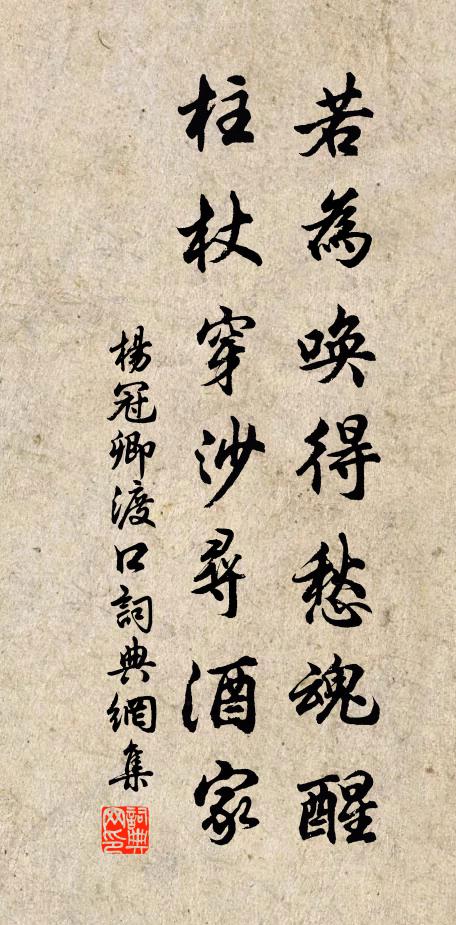 若為喚得愁魂醒
柱杖穿沙尋酒家
楊冠卿渡口詞典網集
詞典網印